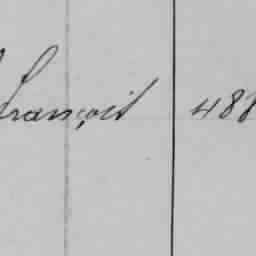 François 488